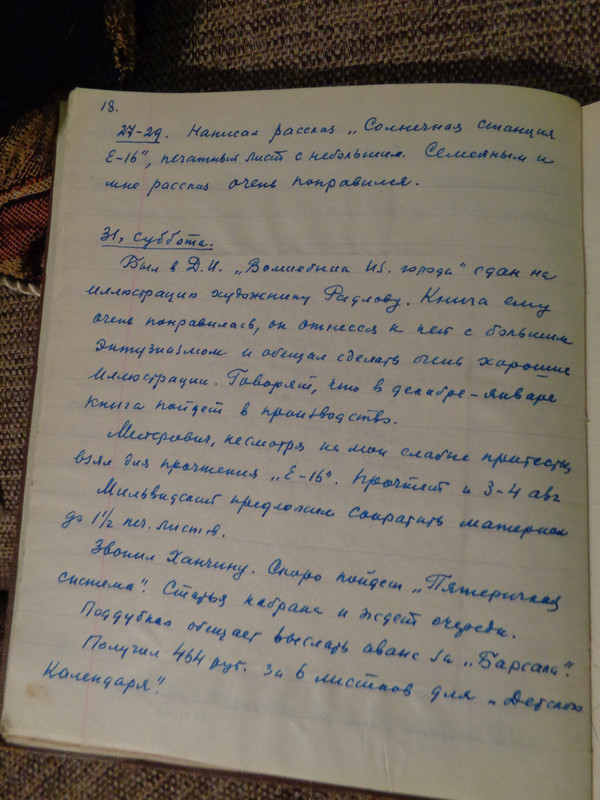 18.
27-29. Написал рассказ „Солнечная станция
Е-16", печатный лист с небольшим. Семейным и
мне рассказ очень понравился.
31, суббота.
Был в Д.И. „Волшебник Из. города" сдан на
иллюстрацию художнику Радлову. Книга ему
очень понравилась, он отнесся к ней с большим
энтузиазмом и обещал сделать очень хорошие
иллюстрации. Говорят, что в декабре-январе
книга пойдет в производство.
Митрович, несмотря на мои слабые протесты,
взял для прочтения „Е-16". Прочтет и 3-4 авг
Мильвидский предложил сократить материал
до 1½ печ. листов.
Звонил Ханчину. Скоро пойдет „Пятеричная
система". Статья набрана и ждет очереди.
Поддубная обещает выслать аванс за „Барсака".
Получил 464 руб. за 6 листков для „Детского
Календаря".